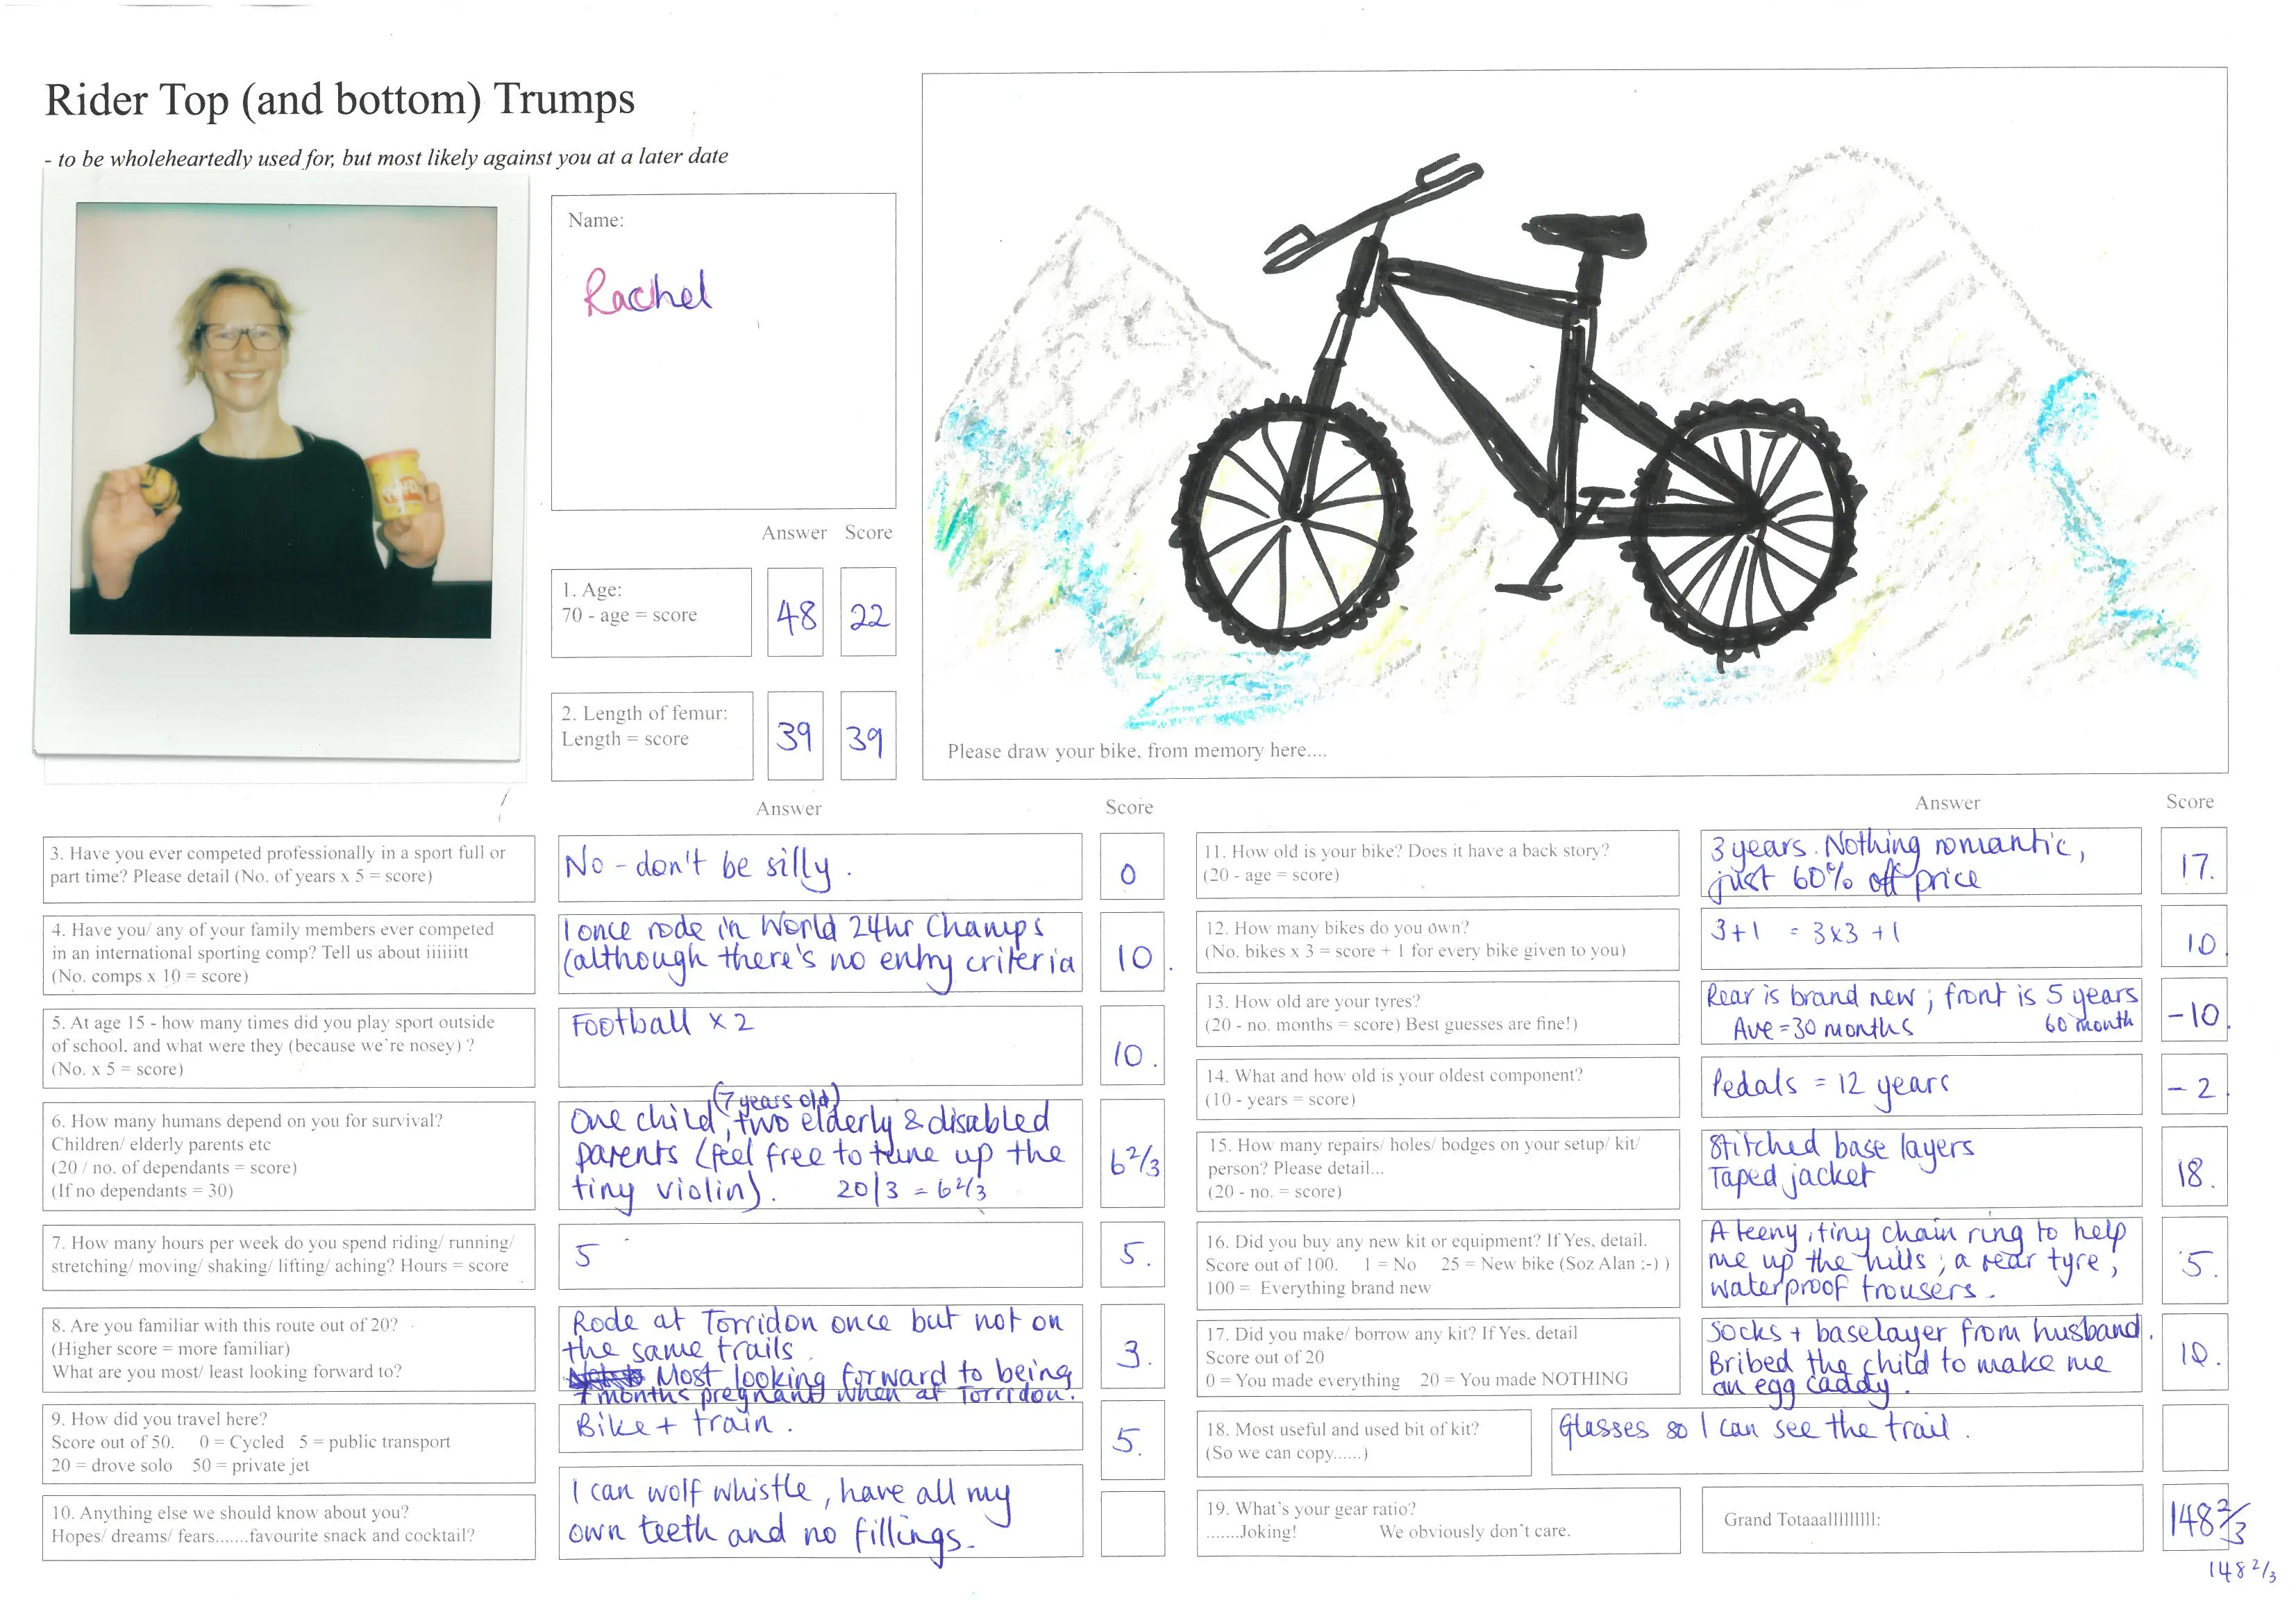 Rider Top (and bottom) Trumps
- to be wholeheartedly used for, but most likely against you at a later date
Name:
Rachel
Answer Score
1. Age:
70 - age = score
48 22
2. Length of femur:
Length = score
39 39
Please draw your bike, from memory here....
Answer Score
3. Have you ever competed professionally in a sport full or
part time? Please detail (No. of years x 5 = score)
No - don't be silly.
0
4. Have you/ any of your family members ever competed
in an international sporting comp? Tell us about iiiiiitt
(No. comps x 10 = score)
I once rode in World 24hr Champs
(although there's no entry criteria
10.
5. At age 15 - how many times did you play sport outside
of school, and what were they (because we're nosey) ?
(No. x 5 = score)
Football x 2
10.
6. How many humans depend on you for survival?
Children/ elderly parents etc
(20 / no. of dependants = score)
(If no dependants = 30)
(7 years old)
One child, two elderly & disabled
parents (feel free to tune up the
tiny violin). 20/3 = 6 2/3
6 2/3
7. How many hours per week do you spend riding/ running/
stretching/ moving/ shaking/ lifting/ aching? Hours = score
5
5.
8. Are you familiar with this route out of 20?
(Higher score = more familiar)
What are you most/ least looking forward to?
Rode at Torridon once but not on
the same trails
Most looking forward to being
7 months pregnant when at Torridon.
3.
9. How did you travel here?
Score out of 50. 0 = Cycled 5 = public transport
20 = drove solo 50 = private jet
Bike + train.
5.
10. Anything else we should know about you?
Hopes/ dreams/ fears.......favourite snack and cocktail?
I can wolf whistle, have all my
own teeth and no fillings.
Answer Score
11. How old is your bike? Does it have a back story?
(20 - age = score)
3 years. Nothing romantic,
just 60% off price
17.
12. How many bikes do you own?
(No. bikes x 3 = score + 1 for every bike given to you)
3+1 = 3x3 +1
10
13. How old are your tyres?
(20 - no. months = score) Best guesses are fine!)
Rear is brand new; front is 5 years
Ave = 30 months 60 month
-10.
14. What and how old is your oldest component?
(10 - years = score)
Pedals = 12 years
-2.
15. How many repairs/ holes/ bodges on your setup/ kit/
person? Please detail...
(20 - no. = score)
Stitched base layers
Taped jacket
18.
16. Did you buy any new kit or equipment? If Yes, detail.
Score out of 100. 1 = No 25 = New bike (Soz Alan :-) )
100 = Everything brand new
A teeny, tiny chain ring to help
me up the hills; a rear tyre,
waterproof trousers.
5.
17. Did you make/ borrow any kit? If Yes, detail
Score out of 20
0 = You made everything 20 = You made NOTHING
Socks + baselayer from husband.
Bribed the child to make me
an egg caddy.
10.
18. Most useful and used bit of kit?
(So we can copy......)
Glasses so I can see the trail.
19. What's your gear ratio?
.......Joking! We obviously don't care.
Grand Totaaallllllllll:
148 2/3
148 2/3